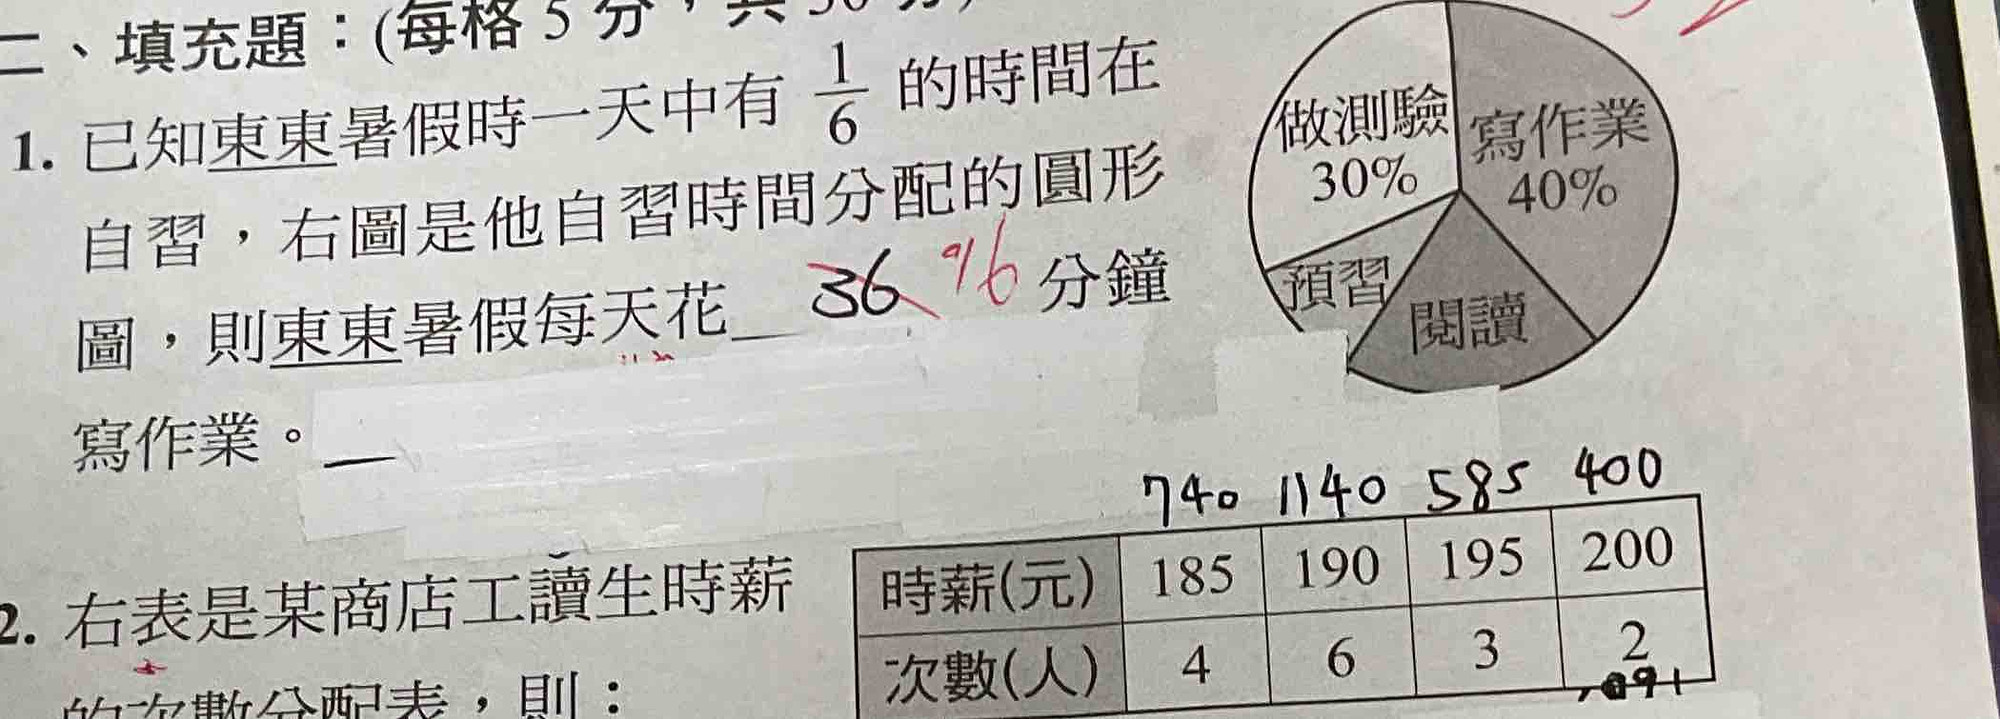 二、填充題：(每格 5 分，共
1. 已知東東暑假時一天中有 1/6 的時間在
自習，右圖是他自習時間分配的圓形
圖，則東東暑假每天花 36 96 分鐘
寫作業。
做測驗
30%
寫作業
40%
預習
閱讀
740 1140 585 400
2. 右表是某商店工讀生時薪
的次數分配表，則：
時薪(元) 185 190 195 200
次數(人) 4 6 3 2